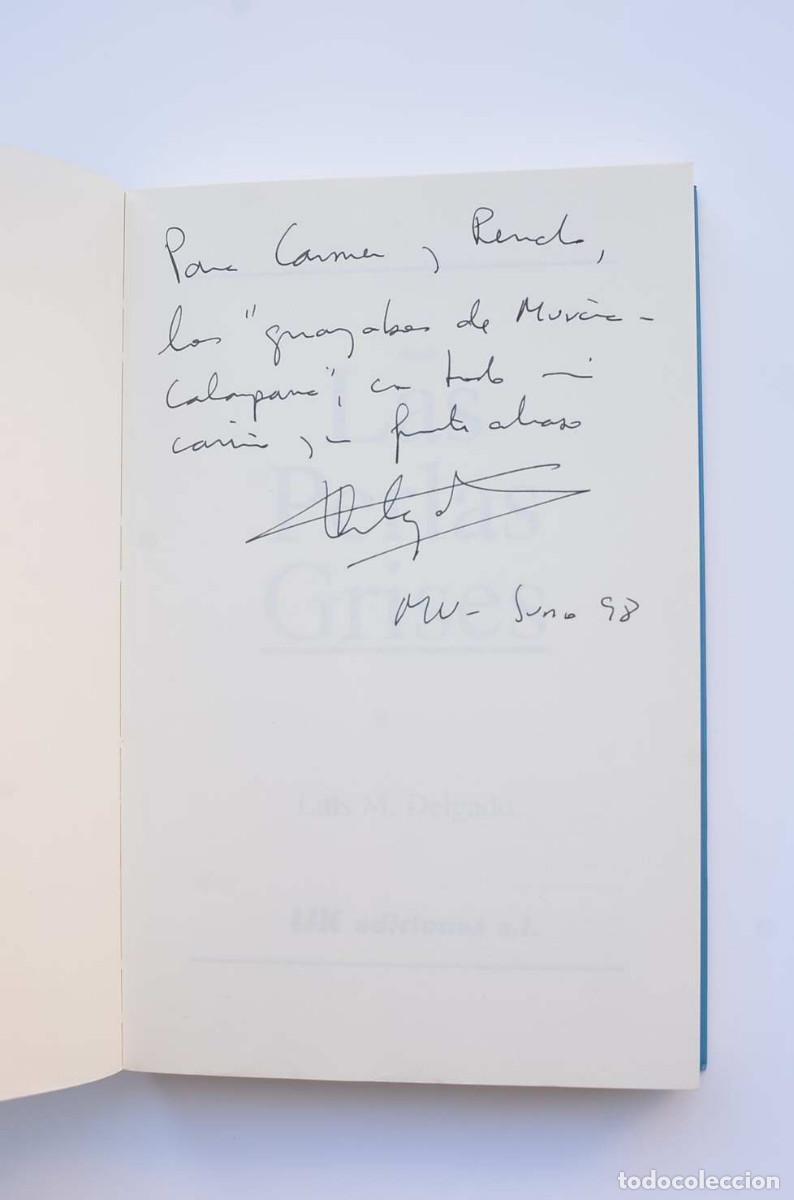 Para Carmen y Renato,
los "guayabos de Murcia-
Calasparra", con todo mi
cariño y un fuerte abrazo
Delgado
Junio 98
Las
Perlas
Grises
Luis M. Delgado
ediciones s.l.
todocoleccion